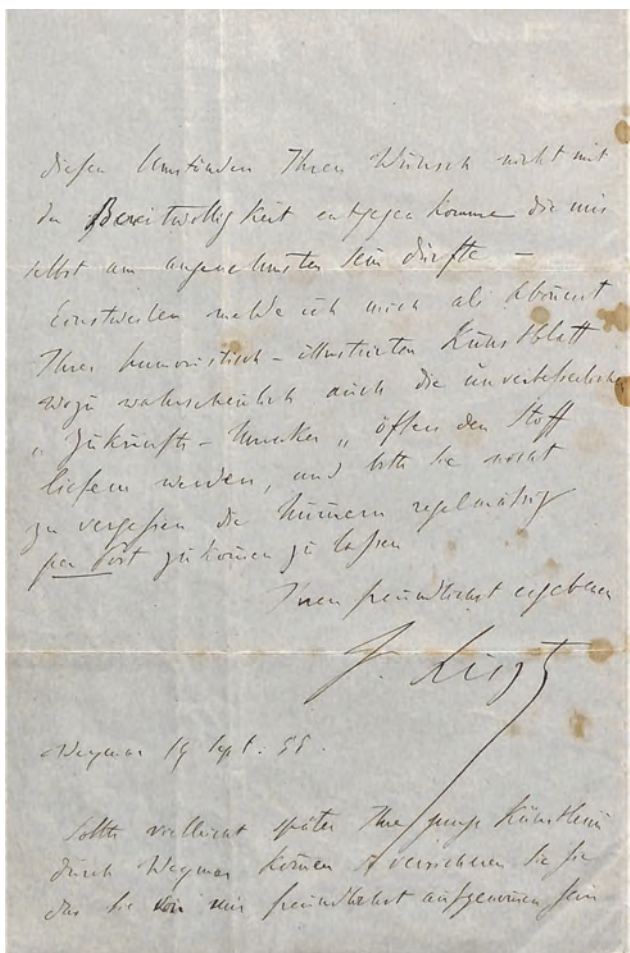 diesen Umständen Ihren Wunsch nicht mit
der Bereitwilligkeit entgegen komme die mir
selbst am angenehmsten sein dürfte –
Einstweilen melde ich mich als Abonent
Ihres humoristisch-illustrirten Kunstblatt
wozu wahrscheinlich auch die unverbesserlichen
„Zukunfts-Musiker„ öfters den Stoff
liefern werden, und bitte Sie nicht
zu vergessen die Nummern regelmässig
per Post zukommen zu lassen
Ihnen freundlichst ergebener
F. Liszt
Weymar 19 Sept: 55.
Sollte vielleicht später Ihre junge Künstlerin
durch Weymar kommen versicheren Sie sie
das Sie von mir freundlichst aufgenommen sein